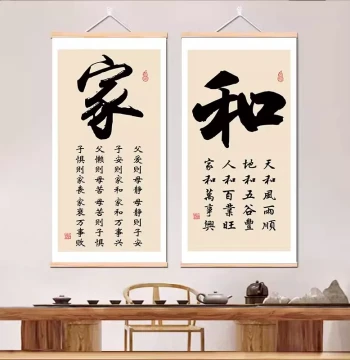 家
父爱则母静母静则子安
子安则家和家和万事兴
父懒则母苦母苦则子惧
子惧则家衰家衰万事败
和
天和風雨順
地和五谷豐
人和百業旺
家和萬事興